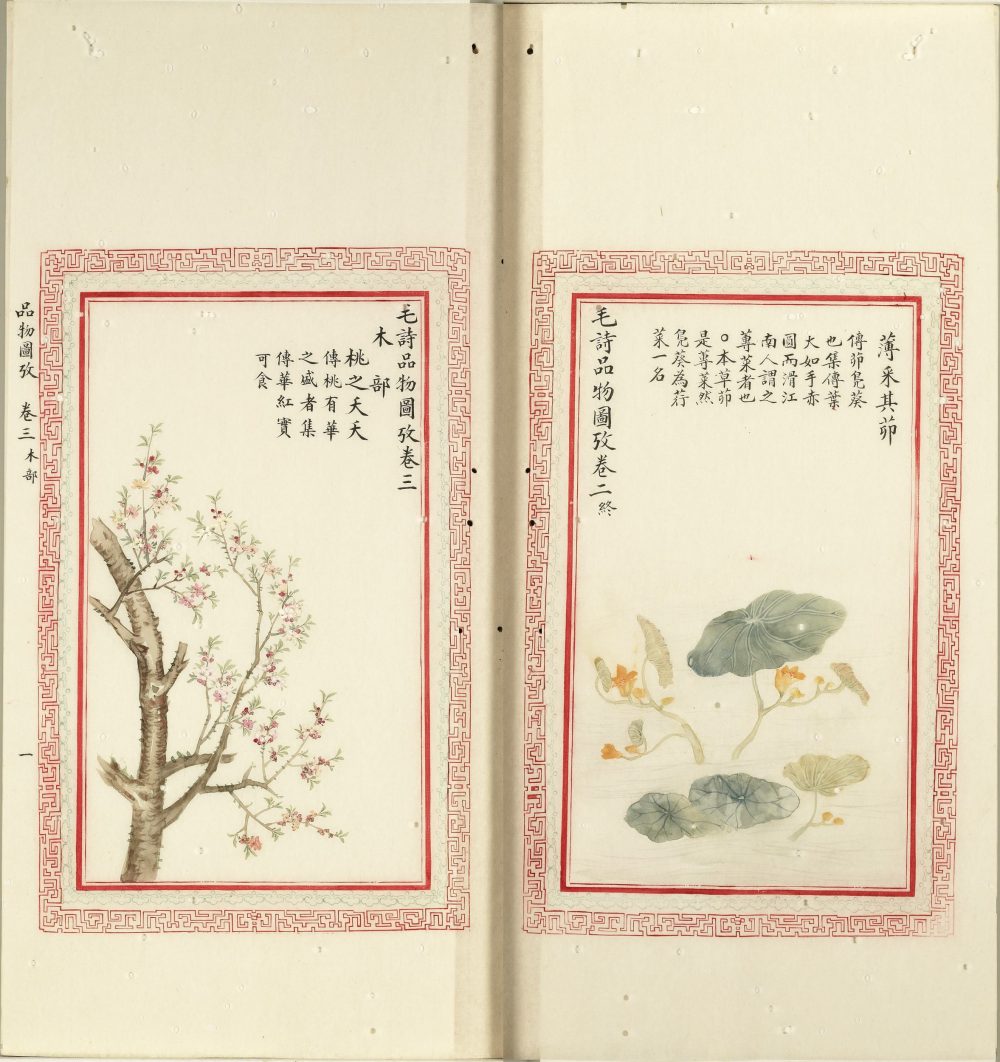 薄采其茆
傳茆鳧葵
也集傳葉
大如手赤
圓而滑江
南人謂之
蓴菜者也
○本草茆
是蓴菜然
鳧葵為荇
菜一名
毛詩品物圖攷卷二終
毛詩品物圖攷卷三
木部
桃之夭夭
傳桃有華
之盛者集
傳華紅實
可食
品物圖攷 卷三 木部 一